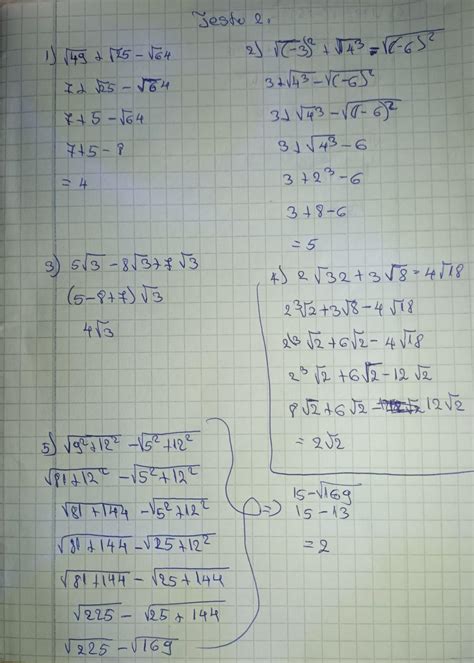 Testu 2.
1) √49 + √25 - √64
7 + √25 - √64
7 + 5 - √64
7 + 5 - 8
= 4
2) √(-3)² + √4³ - √(-6)²
3 + √4³ - √(-6)²
3 + √4³ - √(-6)²
3 + √4³ - 6
3 + 2³ - 6
3 + 8 - 6
= 5
3) 5√3 - 8√3 + 7√3
(5 - 8 + 7) √3
4√3
4) 2√32 + 3√8 - 4√18
2³√2 + 3√8 - 4√18
2³√2 + 6√2 - 4√18
2³√2 + 6√2 - 12√2
8√2 + 6√2 - 12√2
= 2√2
5) √9² + 12² - √5² + 12²
√81 + 12² - √5² + 12²
√81 + 144 - √5² + 12²
√81 + 144 - √25 + 12²
√81 + 144 - √25 + 144
√225 - √25 + 144
√225 - √169
=> 15 - √169
15 - 13
= 2